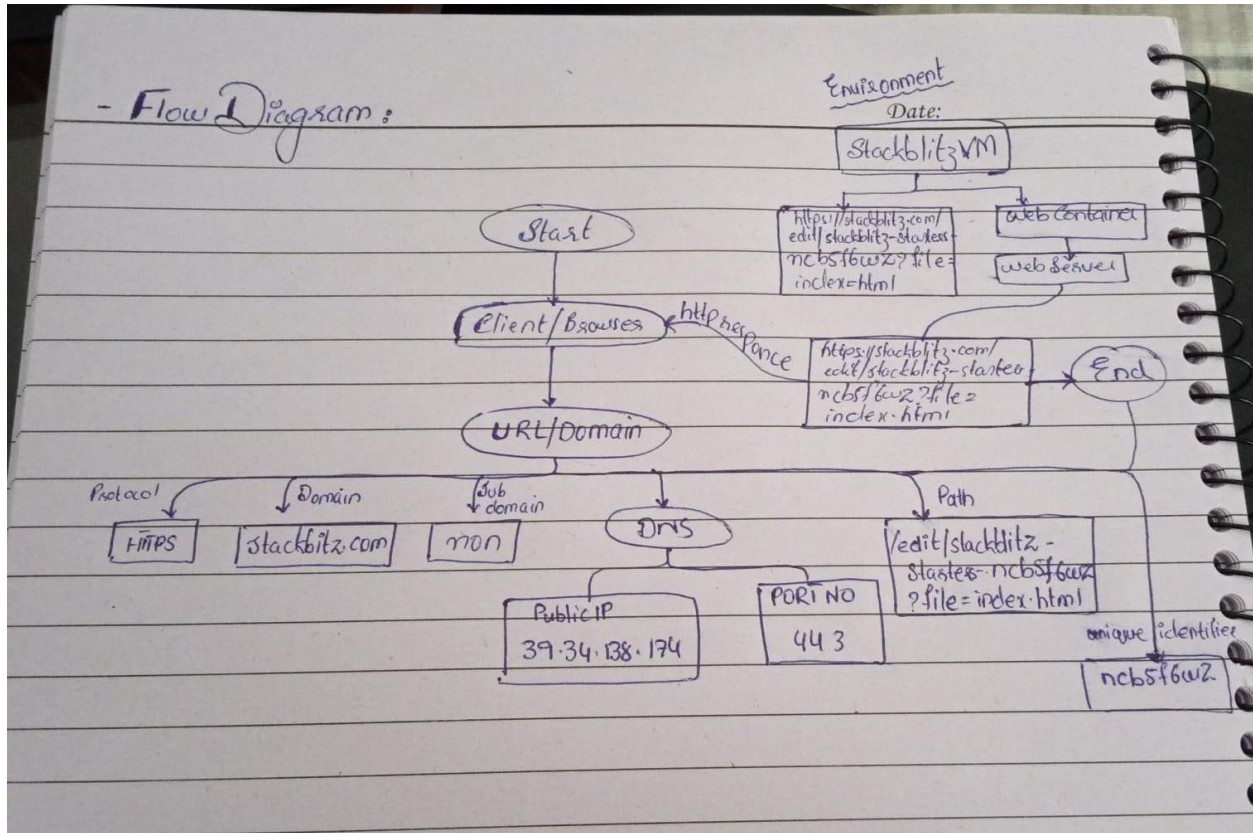 - Flow Diagram:
Environment
Date:
Stackblitz VM
https://stackblitz.com/
edit/stackblitz-starters-
ncb5f6wz?file=
index=html
Web Container
web Server
Start
Client/Browser
http responce
https://stackblitz.com/
edit/stackblitz-starter
ncb5f6wz?file=
index.html
End
URL/Domain
Protocol
HTTPS
Domain
stackbitz.com
Sub
domain
non
DNS
Public IP
39.34.138.174
PORT NO
443
Path
/edit/stackblitz-
starters-ncb5f6wz
?file=index.html
unique identifier
ncb5f6wz